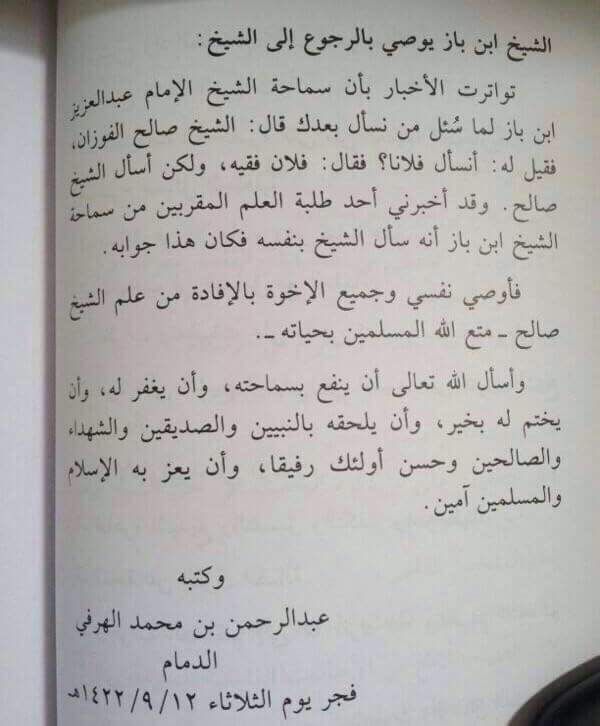 الشيخ ابن باز يوصي بالرجوع إلى الشيخ:
تواترت الأخبار بأن سماحة الشيخ الإمام عبدالعزيز
ابن باز لما سُئل من نسأل بعدك قال: الشيخ صالح الفوزان،
فقيل له: أنسأل فلانا؟ فقال: فلان فقيه، ولكن أسأل الشيخ
صالح. وقد أخبرني أحد طلبة العلم المقربين من سماحة
الشيخ ابن باز أنه سأل الشيخ بنفسه فكان هذا جوابه.
فأوصي نفسي وجميع الإخوة بالإفادة من علم الشيخ
صالح ـ متع الله المسلمين بحياته ـ.
وأسأل الله تعالى أن ينفع بسماحته، وأن يغفر له، وأن
يختم له بخير، وأن يلحقه بالنبيين والصديقين والشهداء
والصالحين وحسن أولئك رفيقا، وأن يعز به الإسلام
والمسلمين آمين.
وكتبه
عبدالرحمن بن محمد الهرفي
الدمام
فجر يوم الثلاثاء ١٤٢٢/٩/١٢هـ